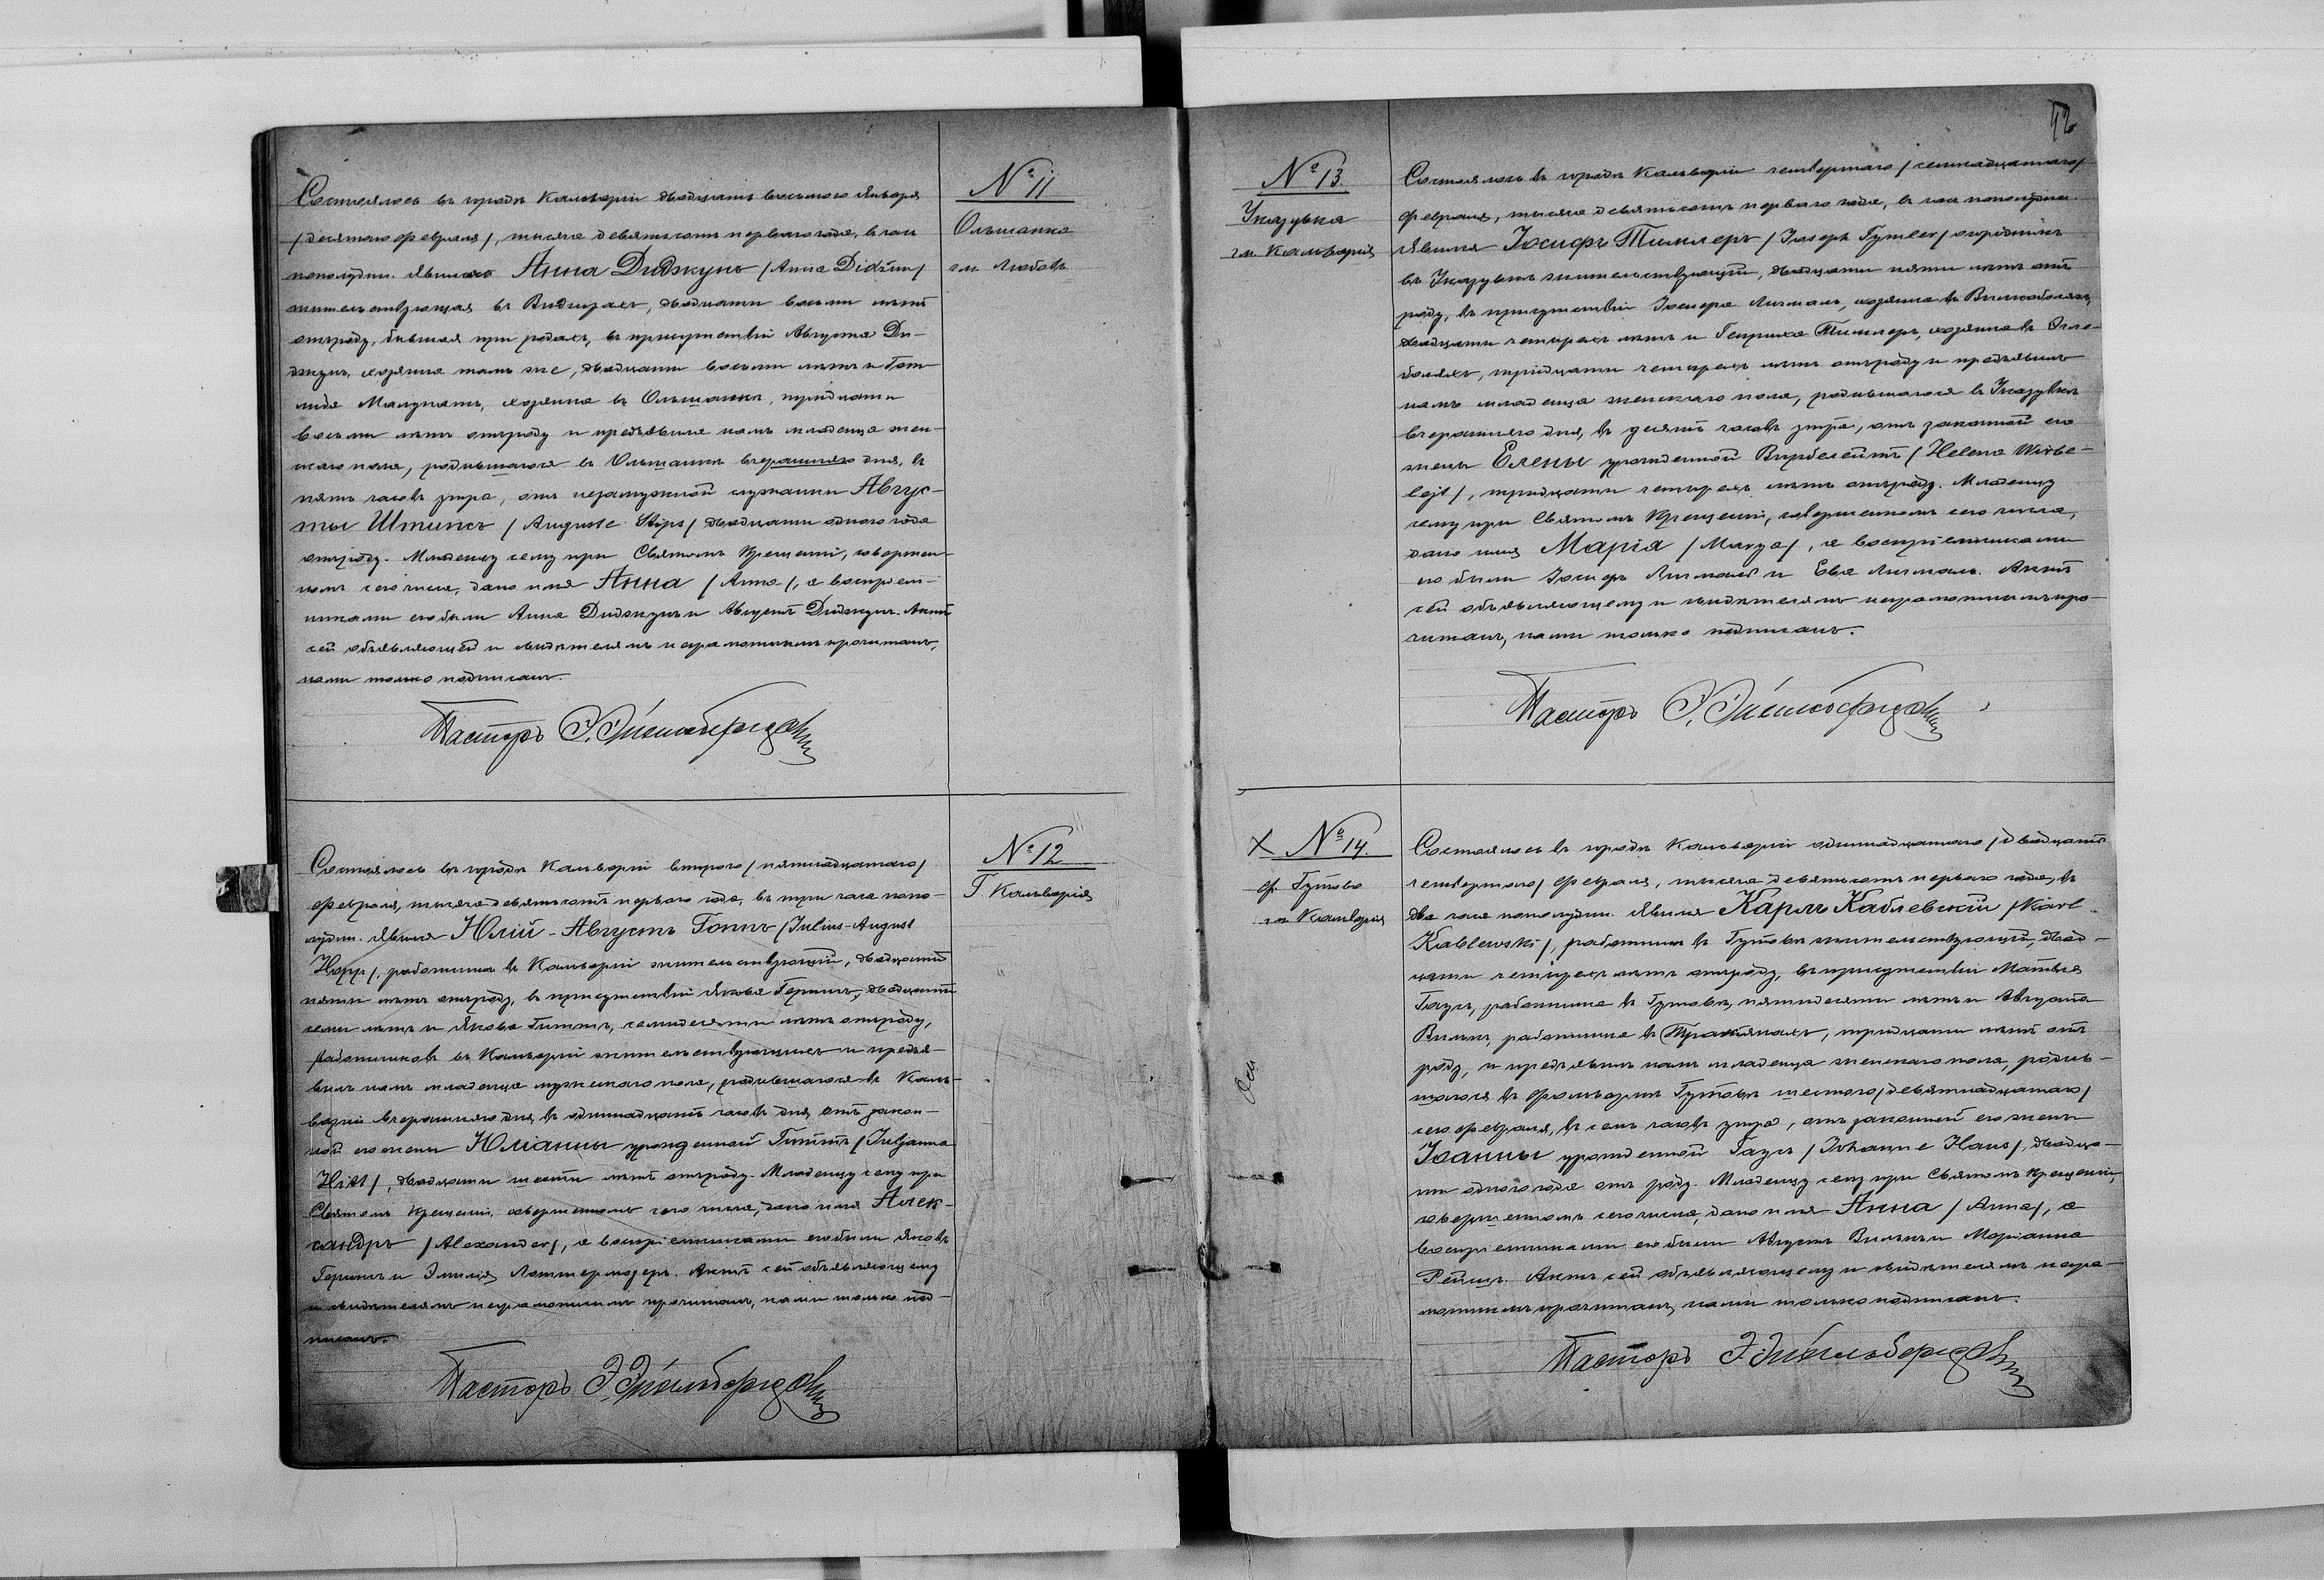 № 11
Ольшанка
гм. Любовъ
Состоялось въ городѣ Кальваріи двадцать восьмого Января
/десятого Февраля/, тысяча девятьсотъ перваго года, въ часъ
пополудни. Явилась Анна Диджунъ /Anna Didżun/
жительствующая въ двадцати восьми лѣтъ
отъ роду, бывшая при родахъ, въ присутствіи Августа Ди-
джунъ, хозяина тамъ же, двадцати восьми лѣтъ и Гот-
либа хозяина въ Ольшанкѣ, тридцати
восьми лѣтъ отъ роду и предъявила намъ младенца жен-
скаго пола, родившагося въ Ольшанкѣ вчерашняго дня, въ
пять часовъ утра, отъ незамужней служанки Авгус-
ты Штипсъ /Auguste Stips/ двадцати одного года
отъ роду. Младенцу сему при Святомъ Крещеніи, совершен-
номъ сего числа, дано имя Анна /Anna/, а воспріем-
никами его были Анна Диджунъ и Августъ Диджунъ. Актъ
сей объявляющей и свидѣтелямъ неграмотнымъ прочитанъ,
нами только подписанъ.
Пасторъ
№ 12
Г. Кальварія
Состоялось въ городѣ Кальваріи второго /пятнадцатаго/
Февраля, тысяча девятьсотъ перваго года, въ три часа попо-
лудни. Явился Юлій-Августъ Гоппъ /Julius-August
Hopp/, работникъ въ Кальваріи жительствующій, двадцати
пяти лѣтъ отъ роду, въ присутствіи Якова двадцати
семи лѣтъ и Якова Гиттъ, семидесяти лѣтъ отъ роду,
работниковъ въ Кальваріи жительствующихъ и предъя-
вилъ намъ младенца мужескаго пола, родившагося въ Каль-
варіи вчерашняго дня, въ одиннадцать часовъ дня отъ закон-
ной его жены Юліанны урожденной Гиттъ /Juljanna
Hitt/, двадцати шести лѣтъ отъ роду. Младенцу сему при
Святомъ Крещеніи, совершенномъ сего числа, дано имя Алек-
сандръ /Alexander/, а воспріемниками его были Яковъ
и Эмилія Актъ сей объявляющему
и свидѣтелямъ неграмотнымъ прочитанъ, нами только под-
писанъ.
Пасторъ
42
№ 13.
Указувка
гм. Кальварія
Состоялось въ городѣ Кальваріи четвертаго /семнадцатаго/
Февраля, тысяча девятьсотъ перваго года, въ часъ пополудни.
Явился Іосифъ Тимлеръ /Joseph Tymler/
въ Указувкѣ жительствующій, двадцати пяти лѣтъ отъ
роду, въ присутствіи Іосифа хозяина въ
двадцати четырехъ лѣтъ и Генриха Тимлеръ, хозяина въ
тридцати четырехъ лѣтъ отъ роду и предъявилъ
намъ младенца женскаго пола, родившагося въ Указувкѣ
вчерашняго дня, въ десять часовъ утра, отъ законной его
жены Елены урожденной Вирбелейтъ /Helena Wirbe-
lejt/, тридцати четырехъ лѣтъ отъ роду. Младенцу
сему при Святомъ Крещеніи, совершенномъ сего числа,
дано имя Марія /Marya/, а воспріемниками
его были Іосифъ и Ева Актъ
сей объявляющему и свидѣтелямъ неграмотнымъ про-
читанъ, нами только подписанъ.
Пасторъ
X № 14.
ф. Гутово
гм. Кальварія
Состоялось въ городѣ Кальваріи одиннадцатаго /двадцать
четвертаго/ Февраля, тысяча девятьсотъ перваго года, въ
два часа пополудни. Явился Карлъ Каблевскій /Karl
Kablewski/, работникъ въ Гутовѣ жительствующій, двад-
цати четырехъ лѣтъ отъ роду, въ присутствіи Матвѣя
Гаусъ, работника въ Гутовѣ, пятидесяти лѣтъ и Августа
работника въ тридцати лѣтъ отъ
роду, и предъявилъ намъ младенца женскаго пола, родив-
шагося въ фольваркѣ Гутовѣ шестого /девятнадцатаго/
сего февраля, въ семь часовъ утра, отъ законной его жены
Іоанны урожденной Гаусъ /Johanne Haus/, двадца-
ти одного года отъ роду. Младенцу сему при Святомъ Крещеніи,
совершенномъ сего числа, дано имя Анна /Anna/, а
воспріемниками его были Августъ и Маріанна
Актъ сей объявляющему и свидѣтелямъ негра-
мотнымъ прочитанъ, нами только подписанъ.
Пасторъ